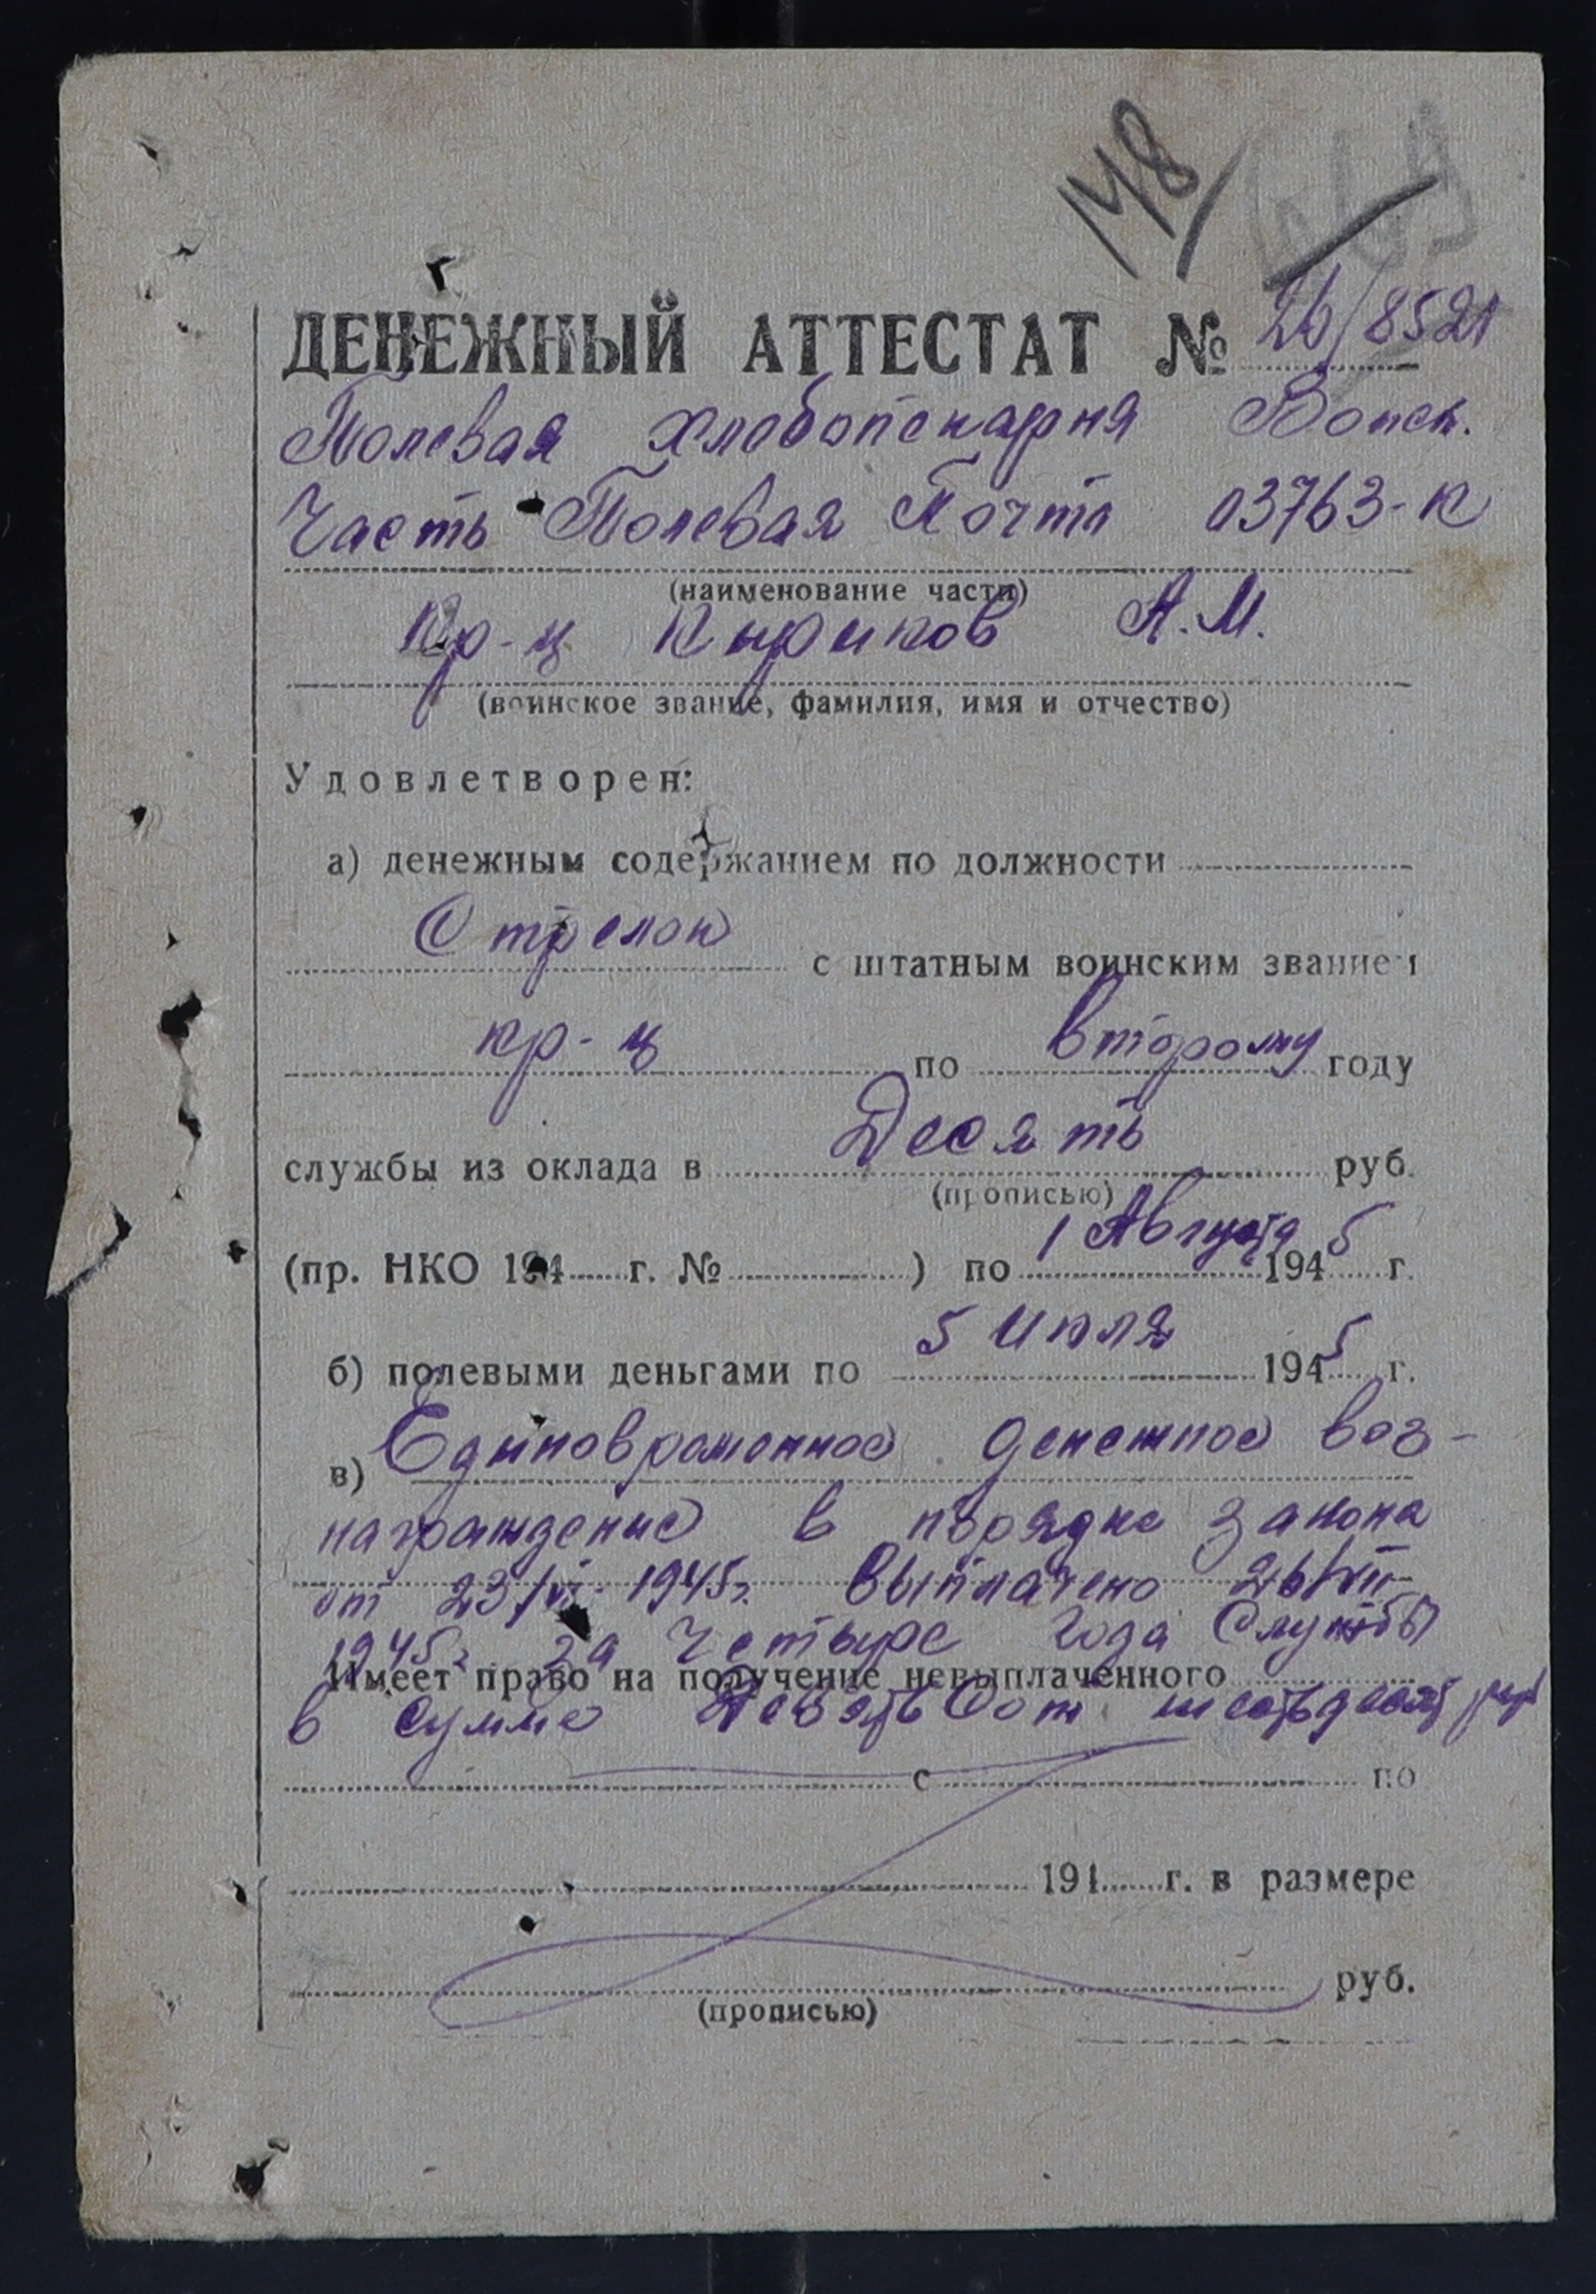 148/
ДЕНЕЖНЫЙ АТТЕСТАТ № 26/8521
Полевая хлебопекарня Воиск.
Часть Полевая Почта 03763-К
(наименование части)
Кр-ц Кыриков А.М.
(воинское звание, фамилия, имя и отчество)
Удовлетворен:
а) денежным содержанием по должности
Стрелок с штатным воинским званием
кр-ц по второму году
службы из оклада в Десять руб.
(прописью)
(пр. НКО 194 г. № ) по 1 Августа 1945 г.
б) полевыми деньгами по 5 Июля 1945 г.
в) Единовременное денежное воз-
награждение в порядке закона
от 23/VI-1945г. выплачено 26/VII-
1945г. за четыре года службы
Имеет право на получение невыплаченного
в сумме Девятьсот шестьдесят руб
с по
194 г. в размере
руб.
(прописью)